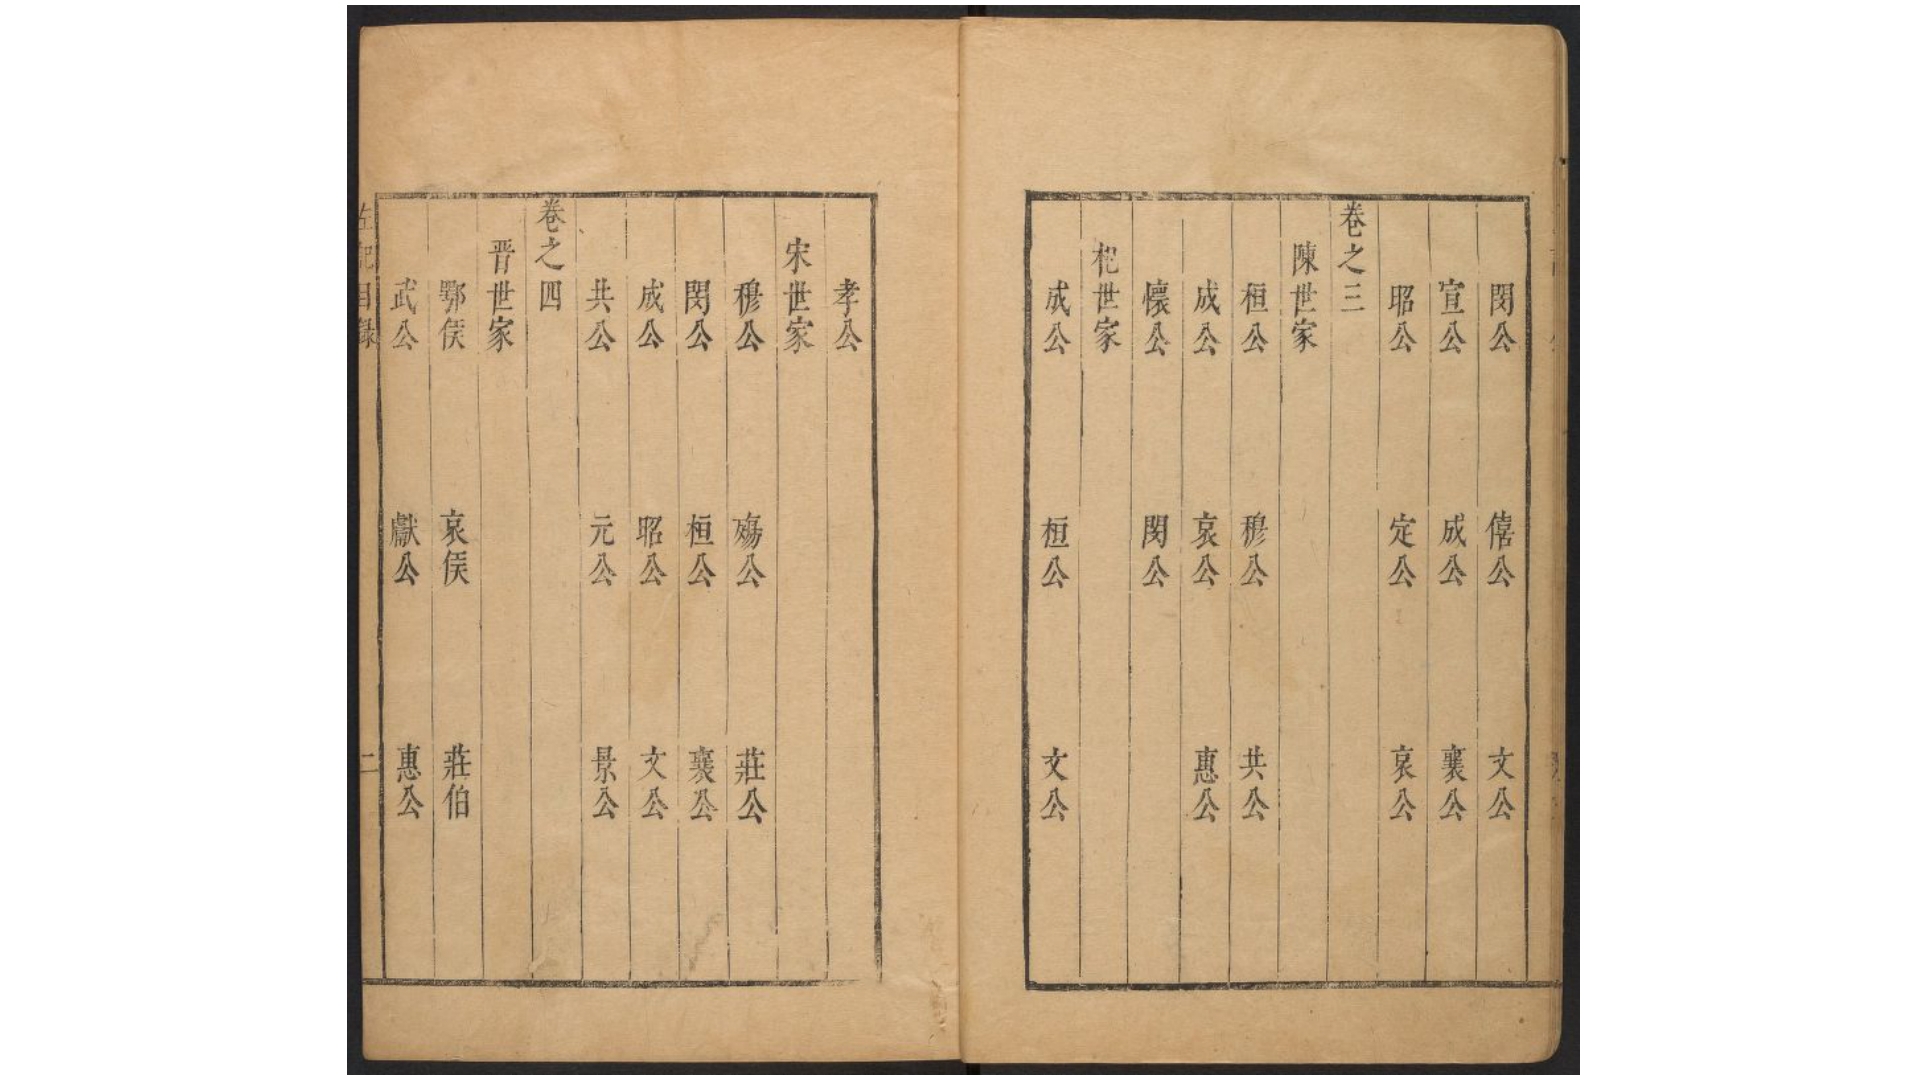 閔公 僖公 文公
宣公 成公 襄公
昭公 定公 哀公
卷之三
陳世家
桓公 穆公 共公
成公 哀公 惠公
懷公 閔公
杞世家
成公 桓公 文公
孝公
宋世家
穆公 殤公 莊公
閔公 桓公 襄公
成公 昭公 文公
共公 元公 景公
卷之四
晋世家
鄂侯 哀侯 莊伯
武公 獻公 惠公
左記目録 二